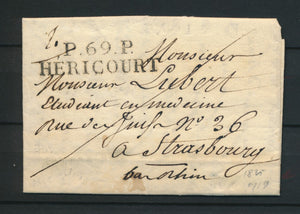 P.69.P.
HÉRICOURT
Monsieur
Monsieur Lubert
Etudiant en medecine
rue des Juifs N° 36
a Strasbourg
bas rhin